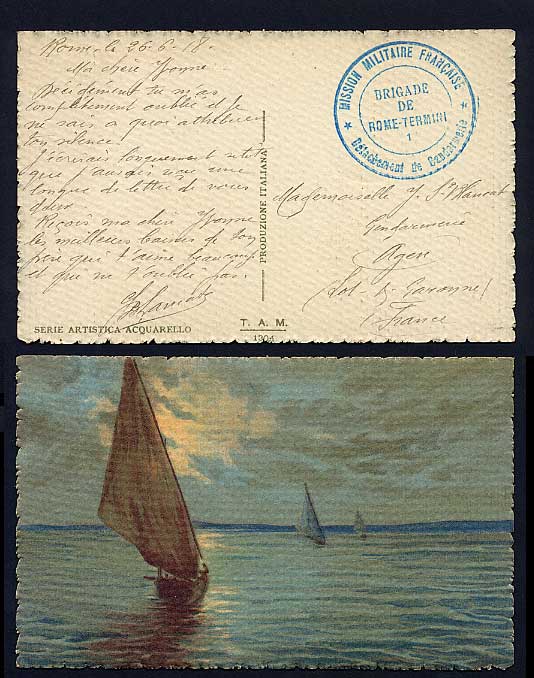 Rome, le 26-6-18.
Ma chère Yvonne
Décidement tu m'as
complètement oublié et je
ne sais a quoi attribuer
ton silence.
J'écrirais longuement sitôt
que j'aurais reçu une
longue lettre de vous
deux.
Reçois ma chère Yvonne
les meilleurs baisers de ton
père qui t'aime beaucoup
et qui ne t'oublie pas.
SERIE ARTISTICA ACQUARELLO
PRODUZIONE ITALIANA
T. A. M.
1304
MISSION MILITAIRE FRANÇAISE
BRIGADE
DE
ROME-TERMINI
1
Détachement de Gendarmerie
Mademoiselle Y.
Gendarmerie
Agen
Lot & Garonne
France